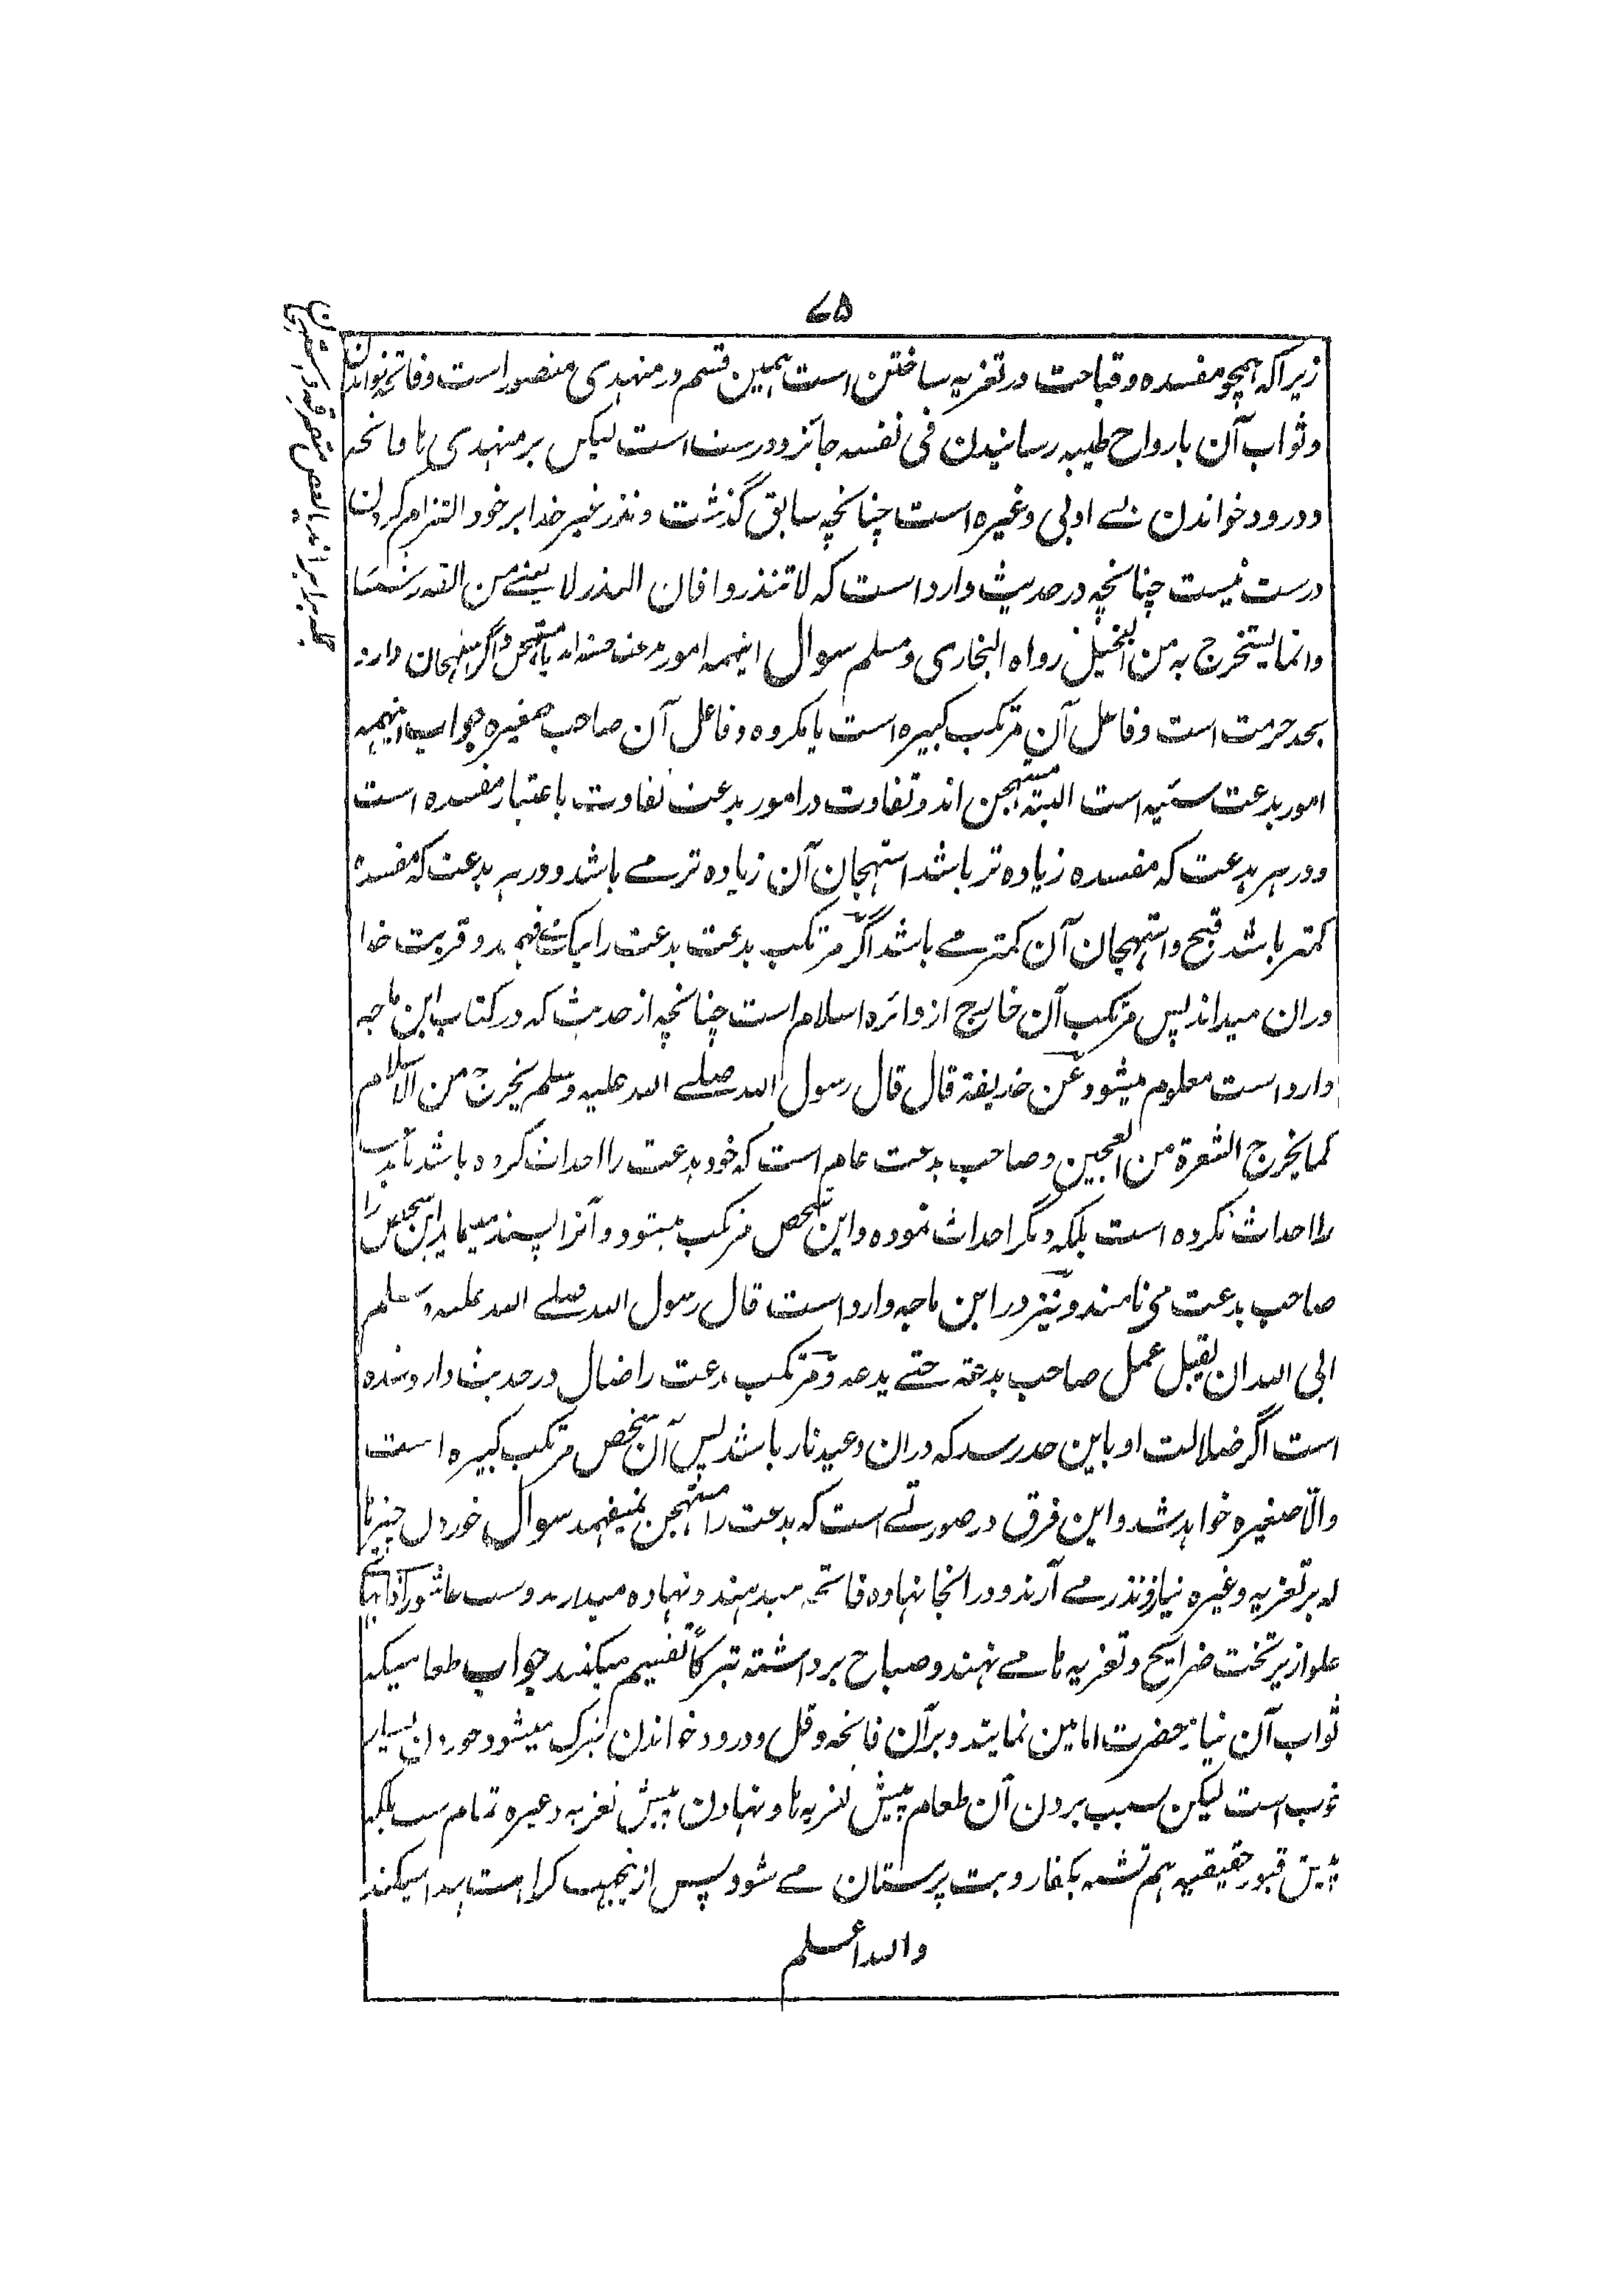 ۷۵
زیراکه همچو مفسده و قباحت در تعزیه ساختن است همین قسم در منهدی متصور است و فاتحه خواندن
و ثواب آن بارواح طیبه رسانیدن فی نفسه جائز و درست است لیکن بر منهدی ها فاتحه
و درود خواندن بے ادبی وغیره است چنانچه سابق گذشت و نذر غیر خدا بر خود التزام کردن
درست نیست چنانچه در حدیث وارد است که لا تنذروا فان النذر لا یغنے من القدر شیئا
وانما یستخرج به من البخیل رواه البخاری و مسلم سوال اینهمه امور بدعت حسنه اند یا مستهجن و اگر استهجان دارد
بحد حرمت است و فاعل آن مرتکب کبیره است یا مکروه و فاعل آن صاحب صغیره جواب اینهمه
امور بدعت سئیه است البته مستهجن اند و تفاوت در امور بدعت تفاوت باعتبار مفسده است
و در هر بدعت که مفسده زیاده تر باشد استهجان آن زیاده تر مے باشد و در هر بدعت که مفسده
کمتر باشد قبح و استهجان آن کمتر مے باشد اگر مرتکب بدعت بدعت را نیک مے فهمد و قربت خدا
دران میداند پس مرتکب آن خارج از دائره اسلام است چنانچه از حدیث که در کتاب ابن ماجه
وارد است معلوم میشود عن حذیفة قال قال رسول الله صلے الله علیه وسلم یخرج من الاسلام
کما یخرج الشعرة من العجین و صاحب بدعت عام است که خود بدعت را احداث کرده باشد یا بدعت
را احداث نکرده است بلکه دیگر احداث نموده و این شخص مرتکب میشود و آنرا پسند مینماید این شخص را
صاحب بدعت می نامند و نیز در ابن ماجه وارد است قال رسول الله صلے الله علیه وسلم
ابی الله ان یقبل عمل صاحب بدعة حتے یدعه و مرتکب بدعت را ضال در حدیث وارد شده
است اگر ضلالت او باین حد رسد که دران وعید نار باشد پس آن شخص مرتکب کبیره است
والّا صغیره خواهد شد و این فرق در صورتے است که بدعت را مستهجن نمیفهمد سوال خوردن چیزها
که بر تعزیه وغیره نیاز و نذر مے آرند و در انجا نهاده فاتحه میدهند و نهاده میدارند و شب عاشورا
حلوا زیر تخت ضرایح و تعزیه ها مے نهند و صباح برداشته تبرکاً تقسیم میکنند جواب طعامیکه
ثواب آن نیاز حضرت امامین نمایند و بران فاتحه و قل و درود خواندن تبرک میشود خوردن بسیار
خوب است لیکن بسبب بردن آن طعام پیش تعزیه ها و نهادن پیش تعزیه وغیره تمام شب بلکه
پیش قبور حقیقیه هم تشبه بکفار و بت پرستان مے شود پس ازینجهت کراهت پیدا میکند
والله اعلم